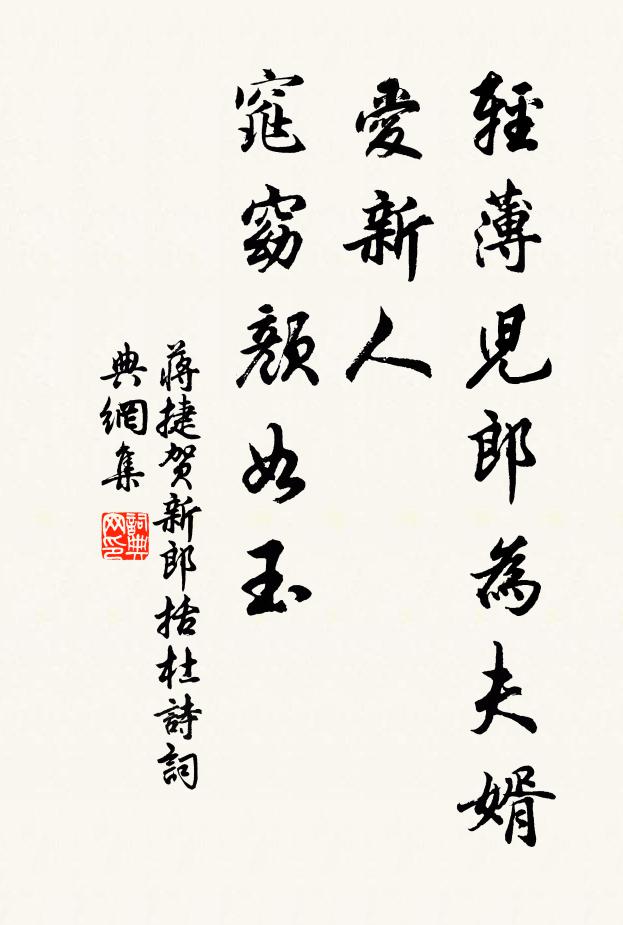 輕薄兒郎為夫婿
愛新人
窕窈顏如玉
蔣捷賀新郎括杜詩詞
典網集
詞典
网印